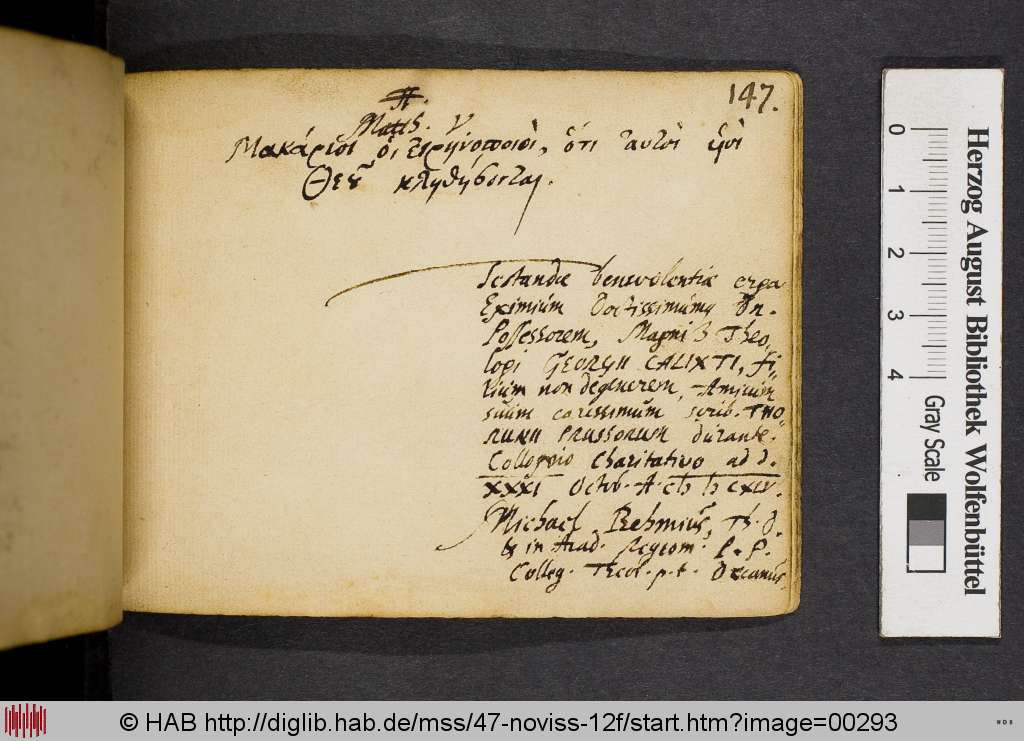 147.
Matth. V
Μακάριοι οἱ εἰρηνοποιοί, ὅτι αυτοὶ ὑοὶ
Θεȣ͂ κληθήσονται.
Testandæ benevolentiæ erga
Eximium Doctissimumq Dn.
Possessorem, Magni Theo,
logi GEORGII CALIXTI, fi,
lium non degenerem, Amicum
suum carissimum scrib. THO
RUNII PRUSSORUM durante
Colloquio Charitativo ad d.
XXXI Octob. A.
Michael Behmius, Th. D.
& in Acad. Regiom. P. P.
Colleg. Theol. p. t. Decanus
Herzog August Bibliothek Wolfenbüttel
0 1 2 3 4
Gray Scale
© HAB http://diglib.hab.de/mss/47-noviss-12f/start.htm?image=00293